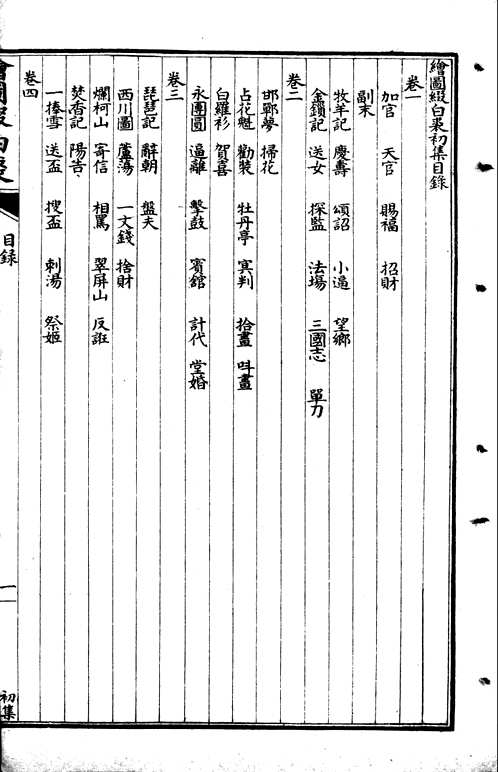 繪圖綴白裘初集目錄
卷一
加官 天官 賜福 招財
副末
牧羊記 慶壽 頌詔 小逼 望鄉
金鎖記 送女 探監 法場 三國志 單刀
卷二
邯鄲夢 掃花
占花魁 勸裝 牡丹亭 冥判 拾畫 叫畫
白羅衫 賀喜
永團圓 逼離 擊鼓 賓館 計代 堂婚
卷三
琵琶記 辭朝 盤夫
西川圖 蘆蕩 一文錢 捨財
爛柯山 寄信 相罵 翠屏山 反誑
焚香記 陽告
一捧雪 送盃 搜盃 刺湯 祭姬
卷四
目錄
一
初集